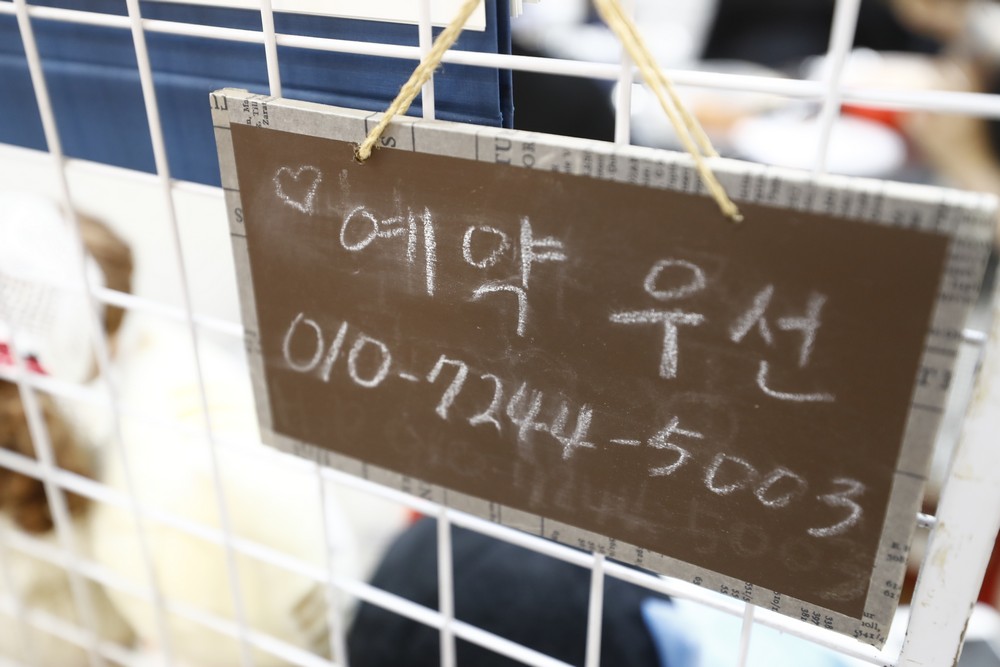 ♡ 예약 우선
010-7244-5003